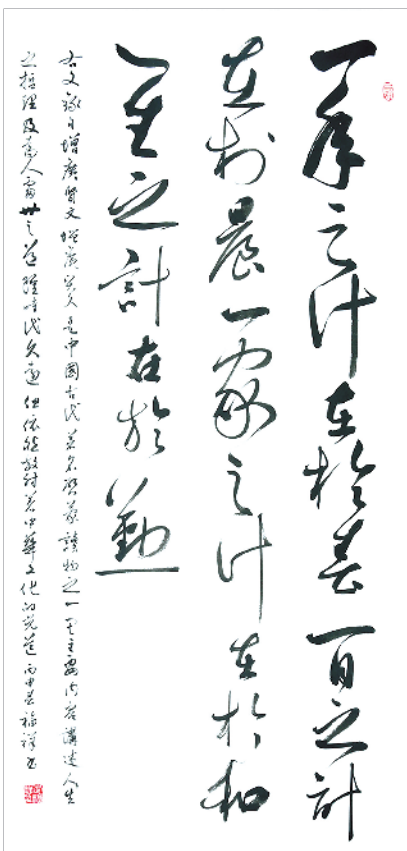 一年之计在於春一日之計
在於晨一家之计在於和
一生之計在於勤
右文錄自增廣賢文增廣賢文是中國古代著名啓蒙讀物之一其主要内容講述人生
之哲理及爲人處世之道雖時代久遠但依然散射着中華文化的光芒丙申春祥书